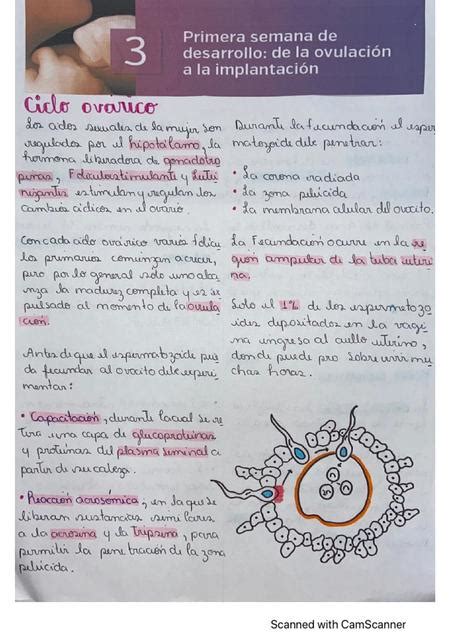 3
Primera semana de
desarrollo: de la ovulación
a la implantación
Ciclo ovárico
Los ciclos sexuales de la mujer son
regulados por el hipotálamo, la
hormona liberadora de gonadotro
pinas, Foliculoestimulante y Lutei
nizantes estimulan y regulan los
cambios cíclicos en el ovario.
Con cada ciclo ovárico varios folicu
los primarios comienzan a crecer,
pero por lo general solo uno alca
nza la madurez completa y es ex
pulsado al momento de la ovula
ción.
Antes de que el espermatozoide pue
da fecundar al ovocito debe experi
mentar:
• Capacitación, durante la cual se re
tira una capa de glucoproteinas
y proteínas del plasma seminal a
partir de su cabeza.
• Reacción acrosómica, en la que se
liberan sustancias similares
a la acrosina y la tripsina, para
permitir la penetración de la zona
pelúcida.
Durante la fecundación el esper
matozoide debe penetrar:
• La corona radiada
• La zona pelúcida
• La membrana celular del ovocito.
La Fecundación ocurre en la re
gión ampular de la tuba uteri
na.
Solo el 1% de los espermatozo
ides depositados en la vagi
na ingresa al cuello uterino,
donde puede sobrevivir mu
chas horas.
Scanned with CamScanner